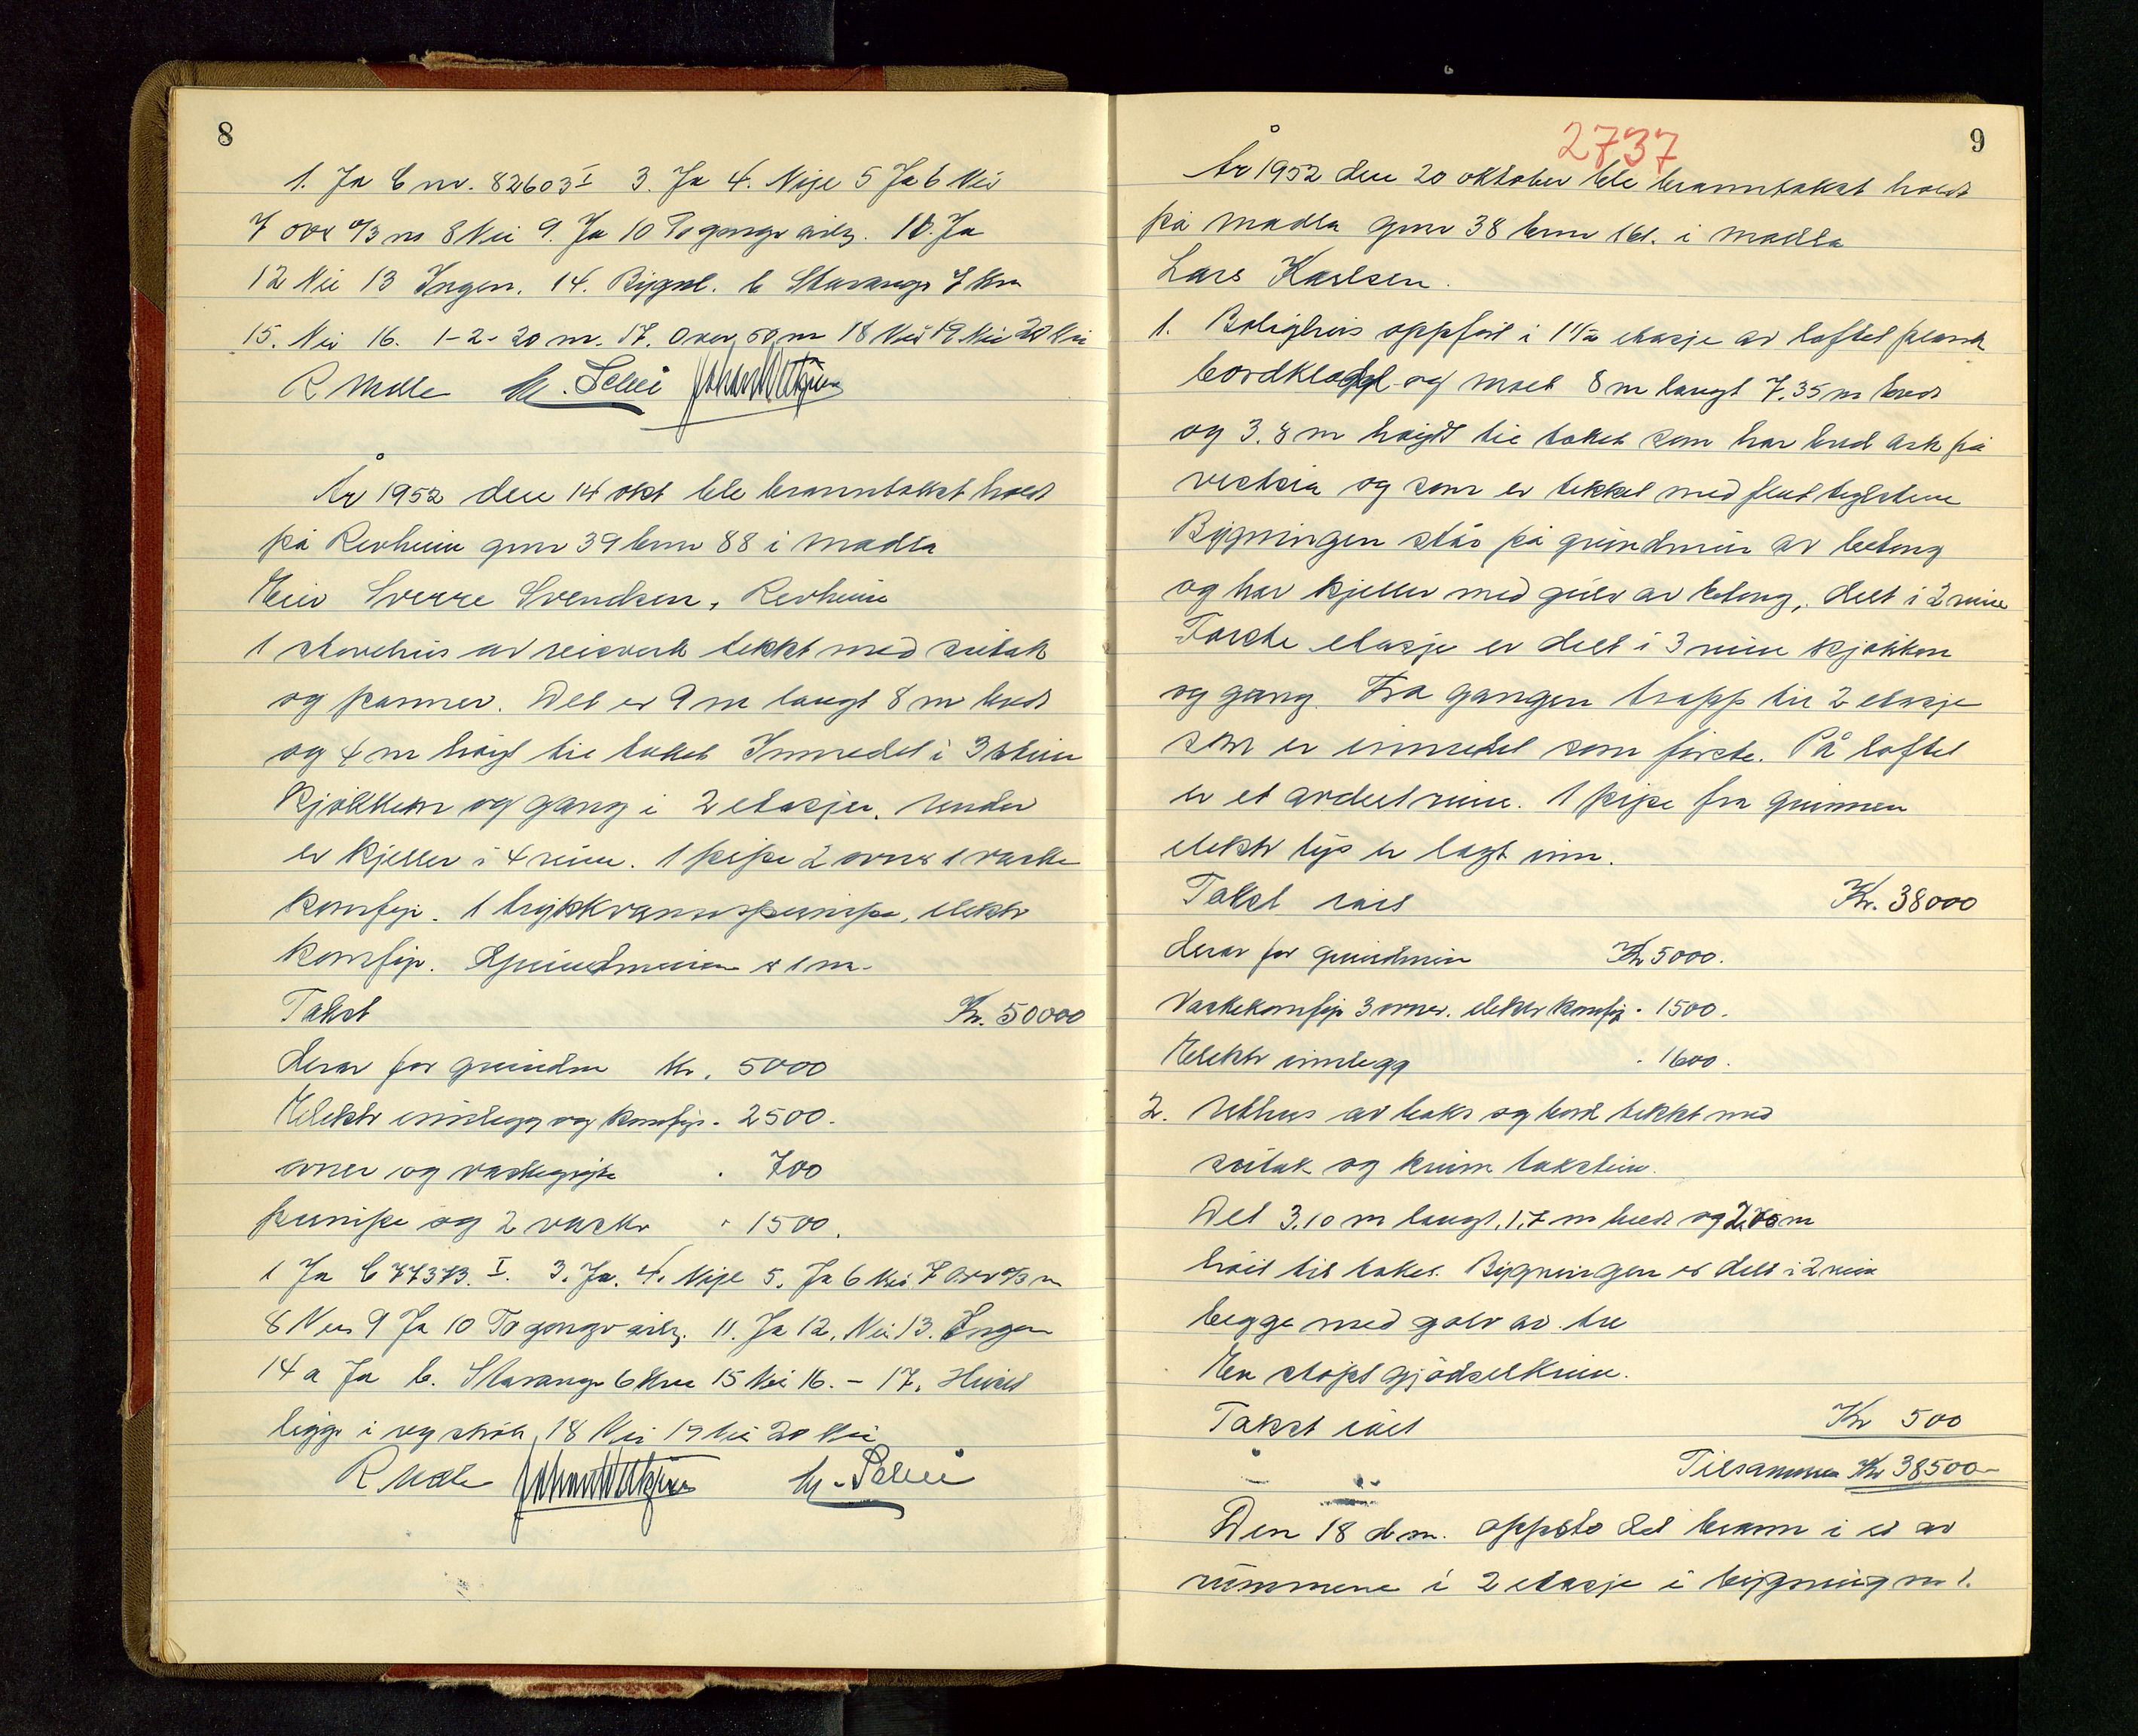 8
1. Ja C nr. 82603 I 3. Ja 4. Nye 5 Ja 6 Nei
7 over 0/3 m 8 Nei 9. Ja 10 To ganger årlig. 11. Ja
12 Nei 13 Ingen. 14. Bygnl. b Stavanger 7 km
15. Nei 16. 1-2-20 m. 17. Over 50 m 18 Nei 19 Nei 20 Nei
R Molle
År 1952 den 14 okt ble branntakst holdt
på Revheim gnr 39 bnr 88 i Madla
Eier Sverre Svendsen, Revheim
1 stovehus av reisverk tekkt med sutak
og panner. Det er 9 m langt 8 m bredt
og 4 m høigt til taket Innredet i 3 stuer
kjøkken og gang i 2 etasjer. Under
er kjeller i 4 rum. 1 pipe 2 ovner 1 vaske
komfyr. 1 trykkvannspumpe, elektr
komfyr. Grundmuren er 1 m.
Takst Kr. 50000
derav for grundm kr. 5000
Elektr innlegg og komfyr. 2500.
ovner og vaskegryte . 700
pumpe og 2 vasker . 1500.
1 Ja C 77373. I. 3. Ja. 4. Nye 5. Ja 6 Nei 7 over 0/3 m
8 Nei 9 Ja 10 To ganger årlig. 11. Ja 12. Nei 13. Ingen
14 a Ja b. Stavanger 6 km 15 Nei 16. – 17. Huset
ligger i strøk 18 Nei 19 Nei 20 Nei
R Molle
9
2737
År 1952 den 20 oktober ble branntakst holdt
på Madla gnr 38 bnr 161. i Madla
Lars Karlsen.
1. Bolighus oppført i 1 1/2 etasje av loftet plank
bordkledd og malt 8 m langt 7.35 m bredt
og 3.8 m høigt til taket som har bred ark på
vestsia og som er tekket med flat teglsteen
Bygningen står på grundmur av betong
og har kjeller med gulv av betong, delt i 2 rum
Første etasje er delt i 3 rum kjøkken
og gang. Fra gangen trapp til 2 etasje
som er innredet som første. På loftet
er et avdelt rum. 1 pipe fra grunnen
elektr lys er lagt inn.
Takst Kr. 38000
derav for grundmur Kr 5000.
Vaskekomfyr 3 ovner. elektr komfyr . 1500.
Elektr innlegg . 1600.
2. Uthus av laks og bord tekkt med
sutak og krum takstein.
Det 3.10 m langt, 1.7 m bredt og m
høit til taket. Bygningen er delt i 2 rum
begge med golv av tre
En støpt gjødselkum.
Takst Kr 500
Tilsammen Kr 38500–
Den 18 d.m. oppsto det brann i et av
rummene i 2 etasje i bygning nr 1.